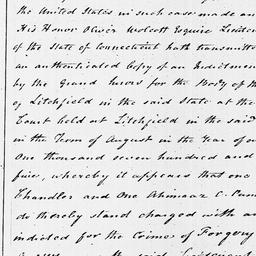 the United States in such case made an
His Honor Oliver Wolcott Esquire Lieuten
of the State of Connecticut hath transmitte
an authenticated Copy of an Indictmen
by the Grand Jurors for the Body of th
of Litchfield in the said State at the
Court held at Litchfield in the said
in the Term of August in the Year of o
One thousand seven hundred and
five, whereby it appears that one
Chandler and One Ahimaaz C. Pun
do thereby stand charged with an
indicted for the Crimes of Forgery
the said Lieutenant